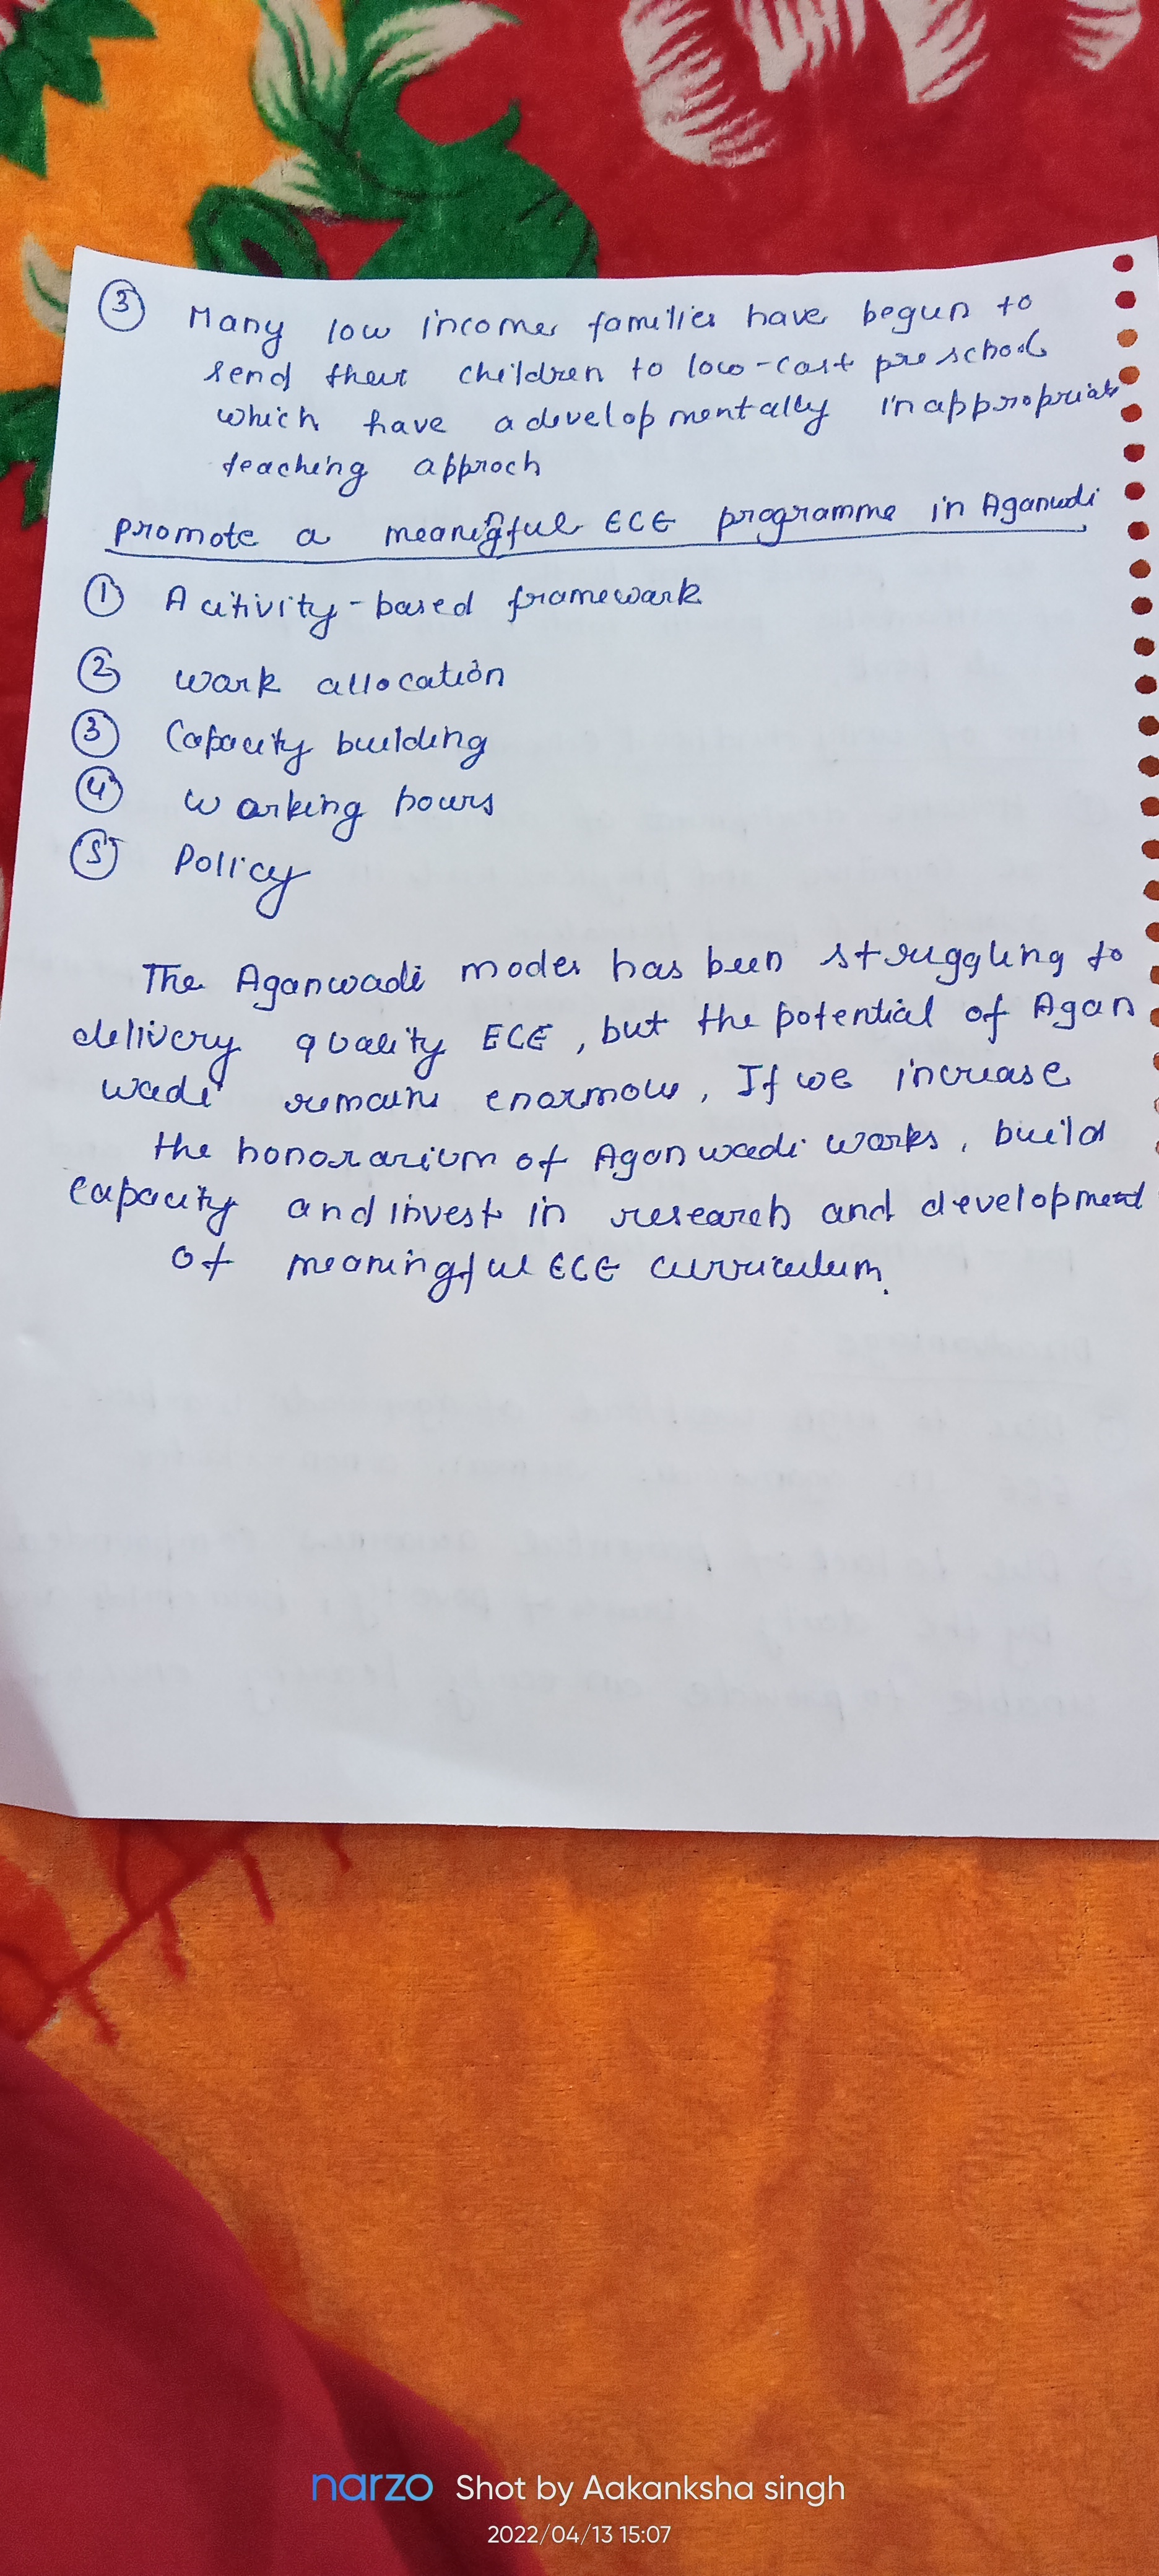 ③ Many low income families have begun to
send their children to low-cast pre school
which have a developmentally inappropriate
teaching approch
promote a meaningful ECE programme in Aganwadi
① Acitivity-based framewark
② wark allocation
③ Capacity building
④ warking hours
⑤ Policy
The Aganwadi modes has been struggling to
delivery quality ECE, but the potential of Agan
wadi remains enarmous, If we increase
the honorarium of Aganwadi warks, build
capacity and invest in research and development
of meaningful ECE curriculum.
narzo Shot by Aakanksha singh
2022/04/13 15:07